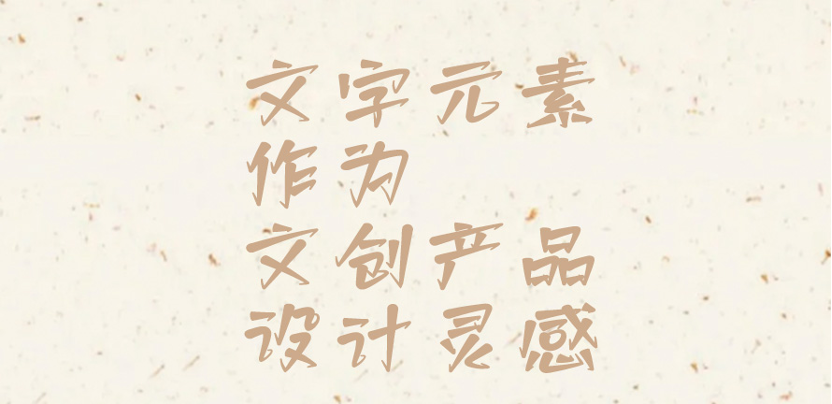 文字元素
作为
文创产品
设计灵感